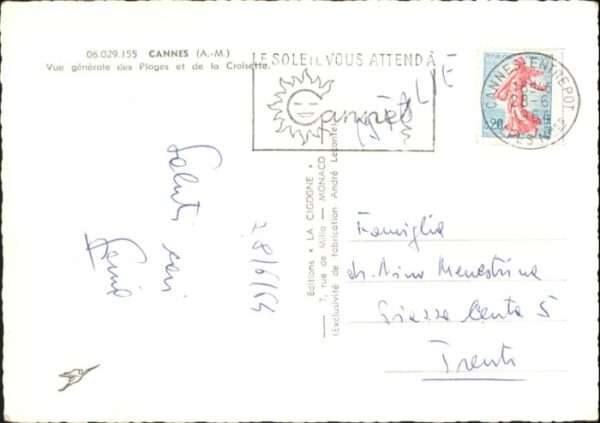 06.029.155 CANNES (A.-M.)
Vue générale des Plages et de la Croisette.
LE SOLEIL VOUS ATTEND À
Cannes
CANNES ENTREPOT
28-6
0,20
Saluti cari
28/6/64
Editions "LA CIGOGNE"
7, rue de Millo — MONACO
(Exclusivité de fabrication André Leconte)
Famiglia
dr. Nino Menestrina
Piazza Centa 5
Trento